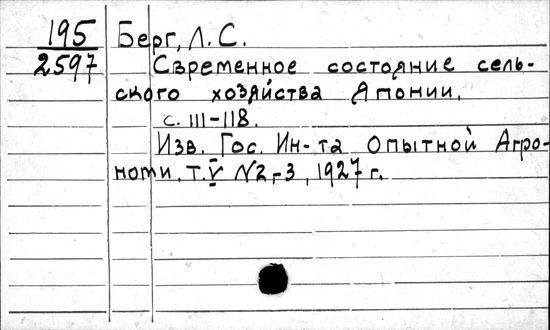 195 Берг, Л. С.
2597 Свременное состояние сель-
ского хозяйства Японии.
с. 111-118.
Изв. Гос. Ин-та Опытной Агро-
номи. Т. V N2-3, 1927 г.